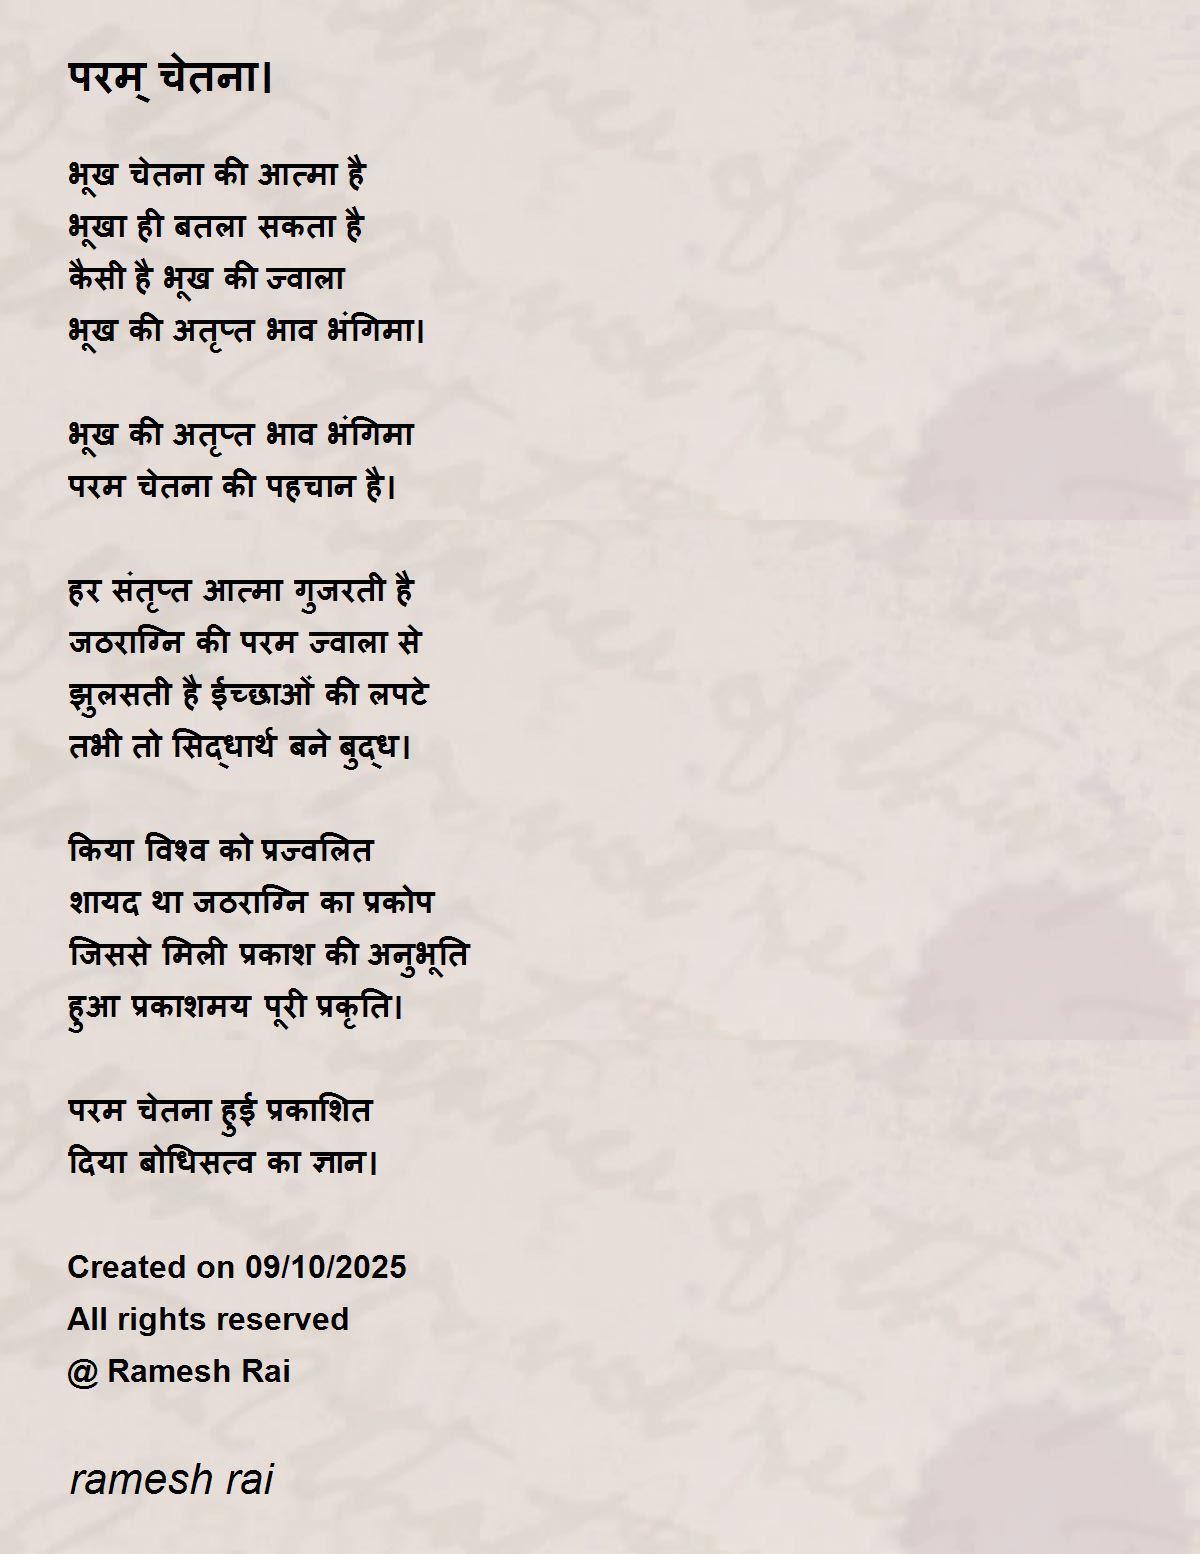 परम् चेतना।
भूख चेतना की आत्मा है
भूखा ही बतला सकता है
कैसी है भूख की ज्वाला
भूख की अतृप्त भाव भंगिमा।
भूख की अतृप्त भाव भंगिमा
परम चेतना की पहचान है।
हर संतृप्त आत्मा गुजरती है
जठराग्नि की परम ज्वाला से
झुलसती है ईच्छाओं की लपटे
तभी तो सिद्धार्थ बने बुद्ध।
किया विश्व को प्रज्वलित
शायद था जठराग्नि का प्रकोप
जिससे मिली प्रकाश की अनुभूति
हुआ प्रकाशमय पूरी प्रकृति।
परम चेतना हुई प्रकाशित
दिया बोधिसत्व का ज्ञान।
Created on 09/10/2025
All rights reserved
@ Ramesh Rai
ramesh rai